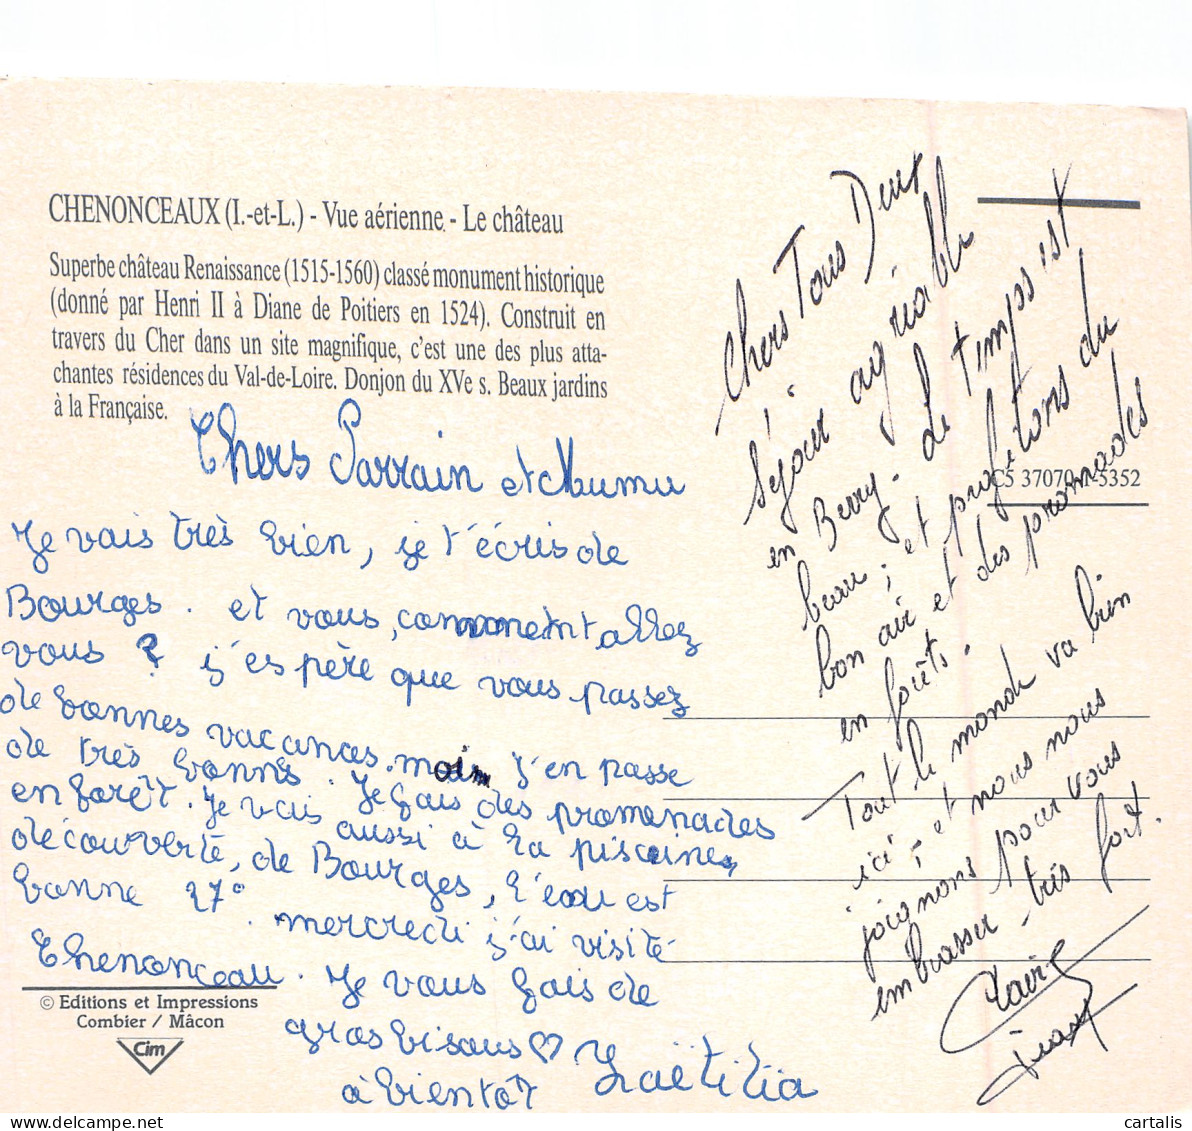 CHENONCEAUX (I.-et-L.) - Vue aérienne - Le château
Superbe château Renaissance (1515-1560) classé monument historique
(donné par Henri II à Diane de Poitiers en 1524). Construit en
travers du Cher dans un site magnifique, c'est une des plus atta-
chantes résidences du Val-de-Loire. Donjon du XVe s. Beaux jardins
à la Française.
Chers Parrain et Mumu
Je vais très bien, je t'écris de
Bourges. et vous, comment allez
vous ? j'espère que vous passez
de bonnes vacances. moi j'en passe
de très bonns. Je fais des promenades
en forêt. Je vais aussi à la piscine,
découverte, de Bourges, l'eau est
bonne 27°. mercredi j'ai visité
Chenonceau. Je vous fais de
gros bisous ♡ Laëtitia
à bientôt
© Editions et Impressions
Combier / Mâcon
Cim
Chers Tous Deux
Séjour agréable
en Berry. Le temps est
beau ; et profitons du
bon air et des promades
en forêts.
Tout le monde va bien
ici ; et nous nous
joignons pour vous
embrasser très fort.
Claire
C5 37070 5352
cartalis